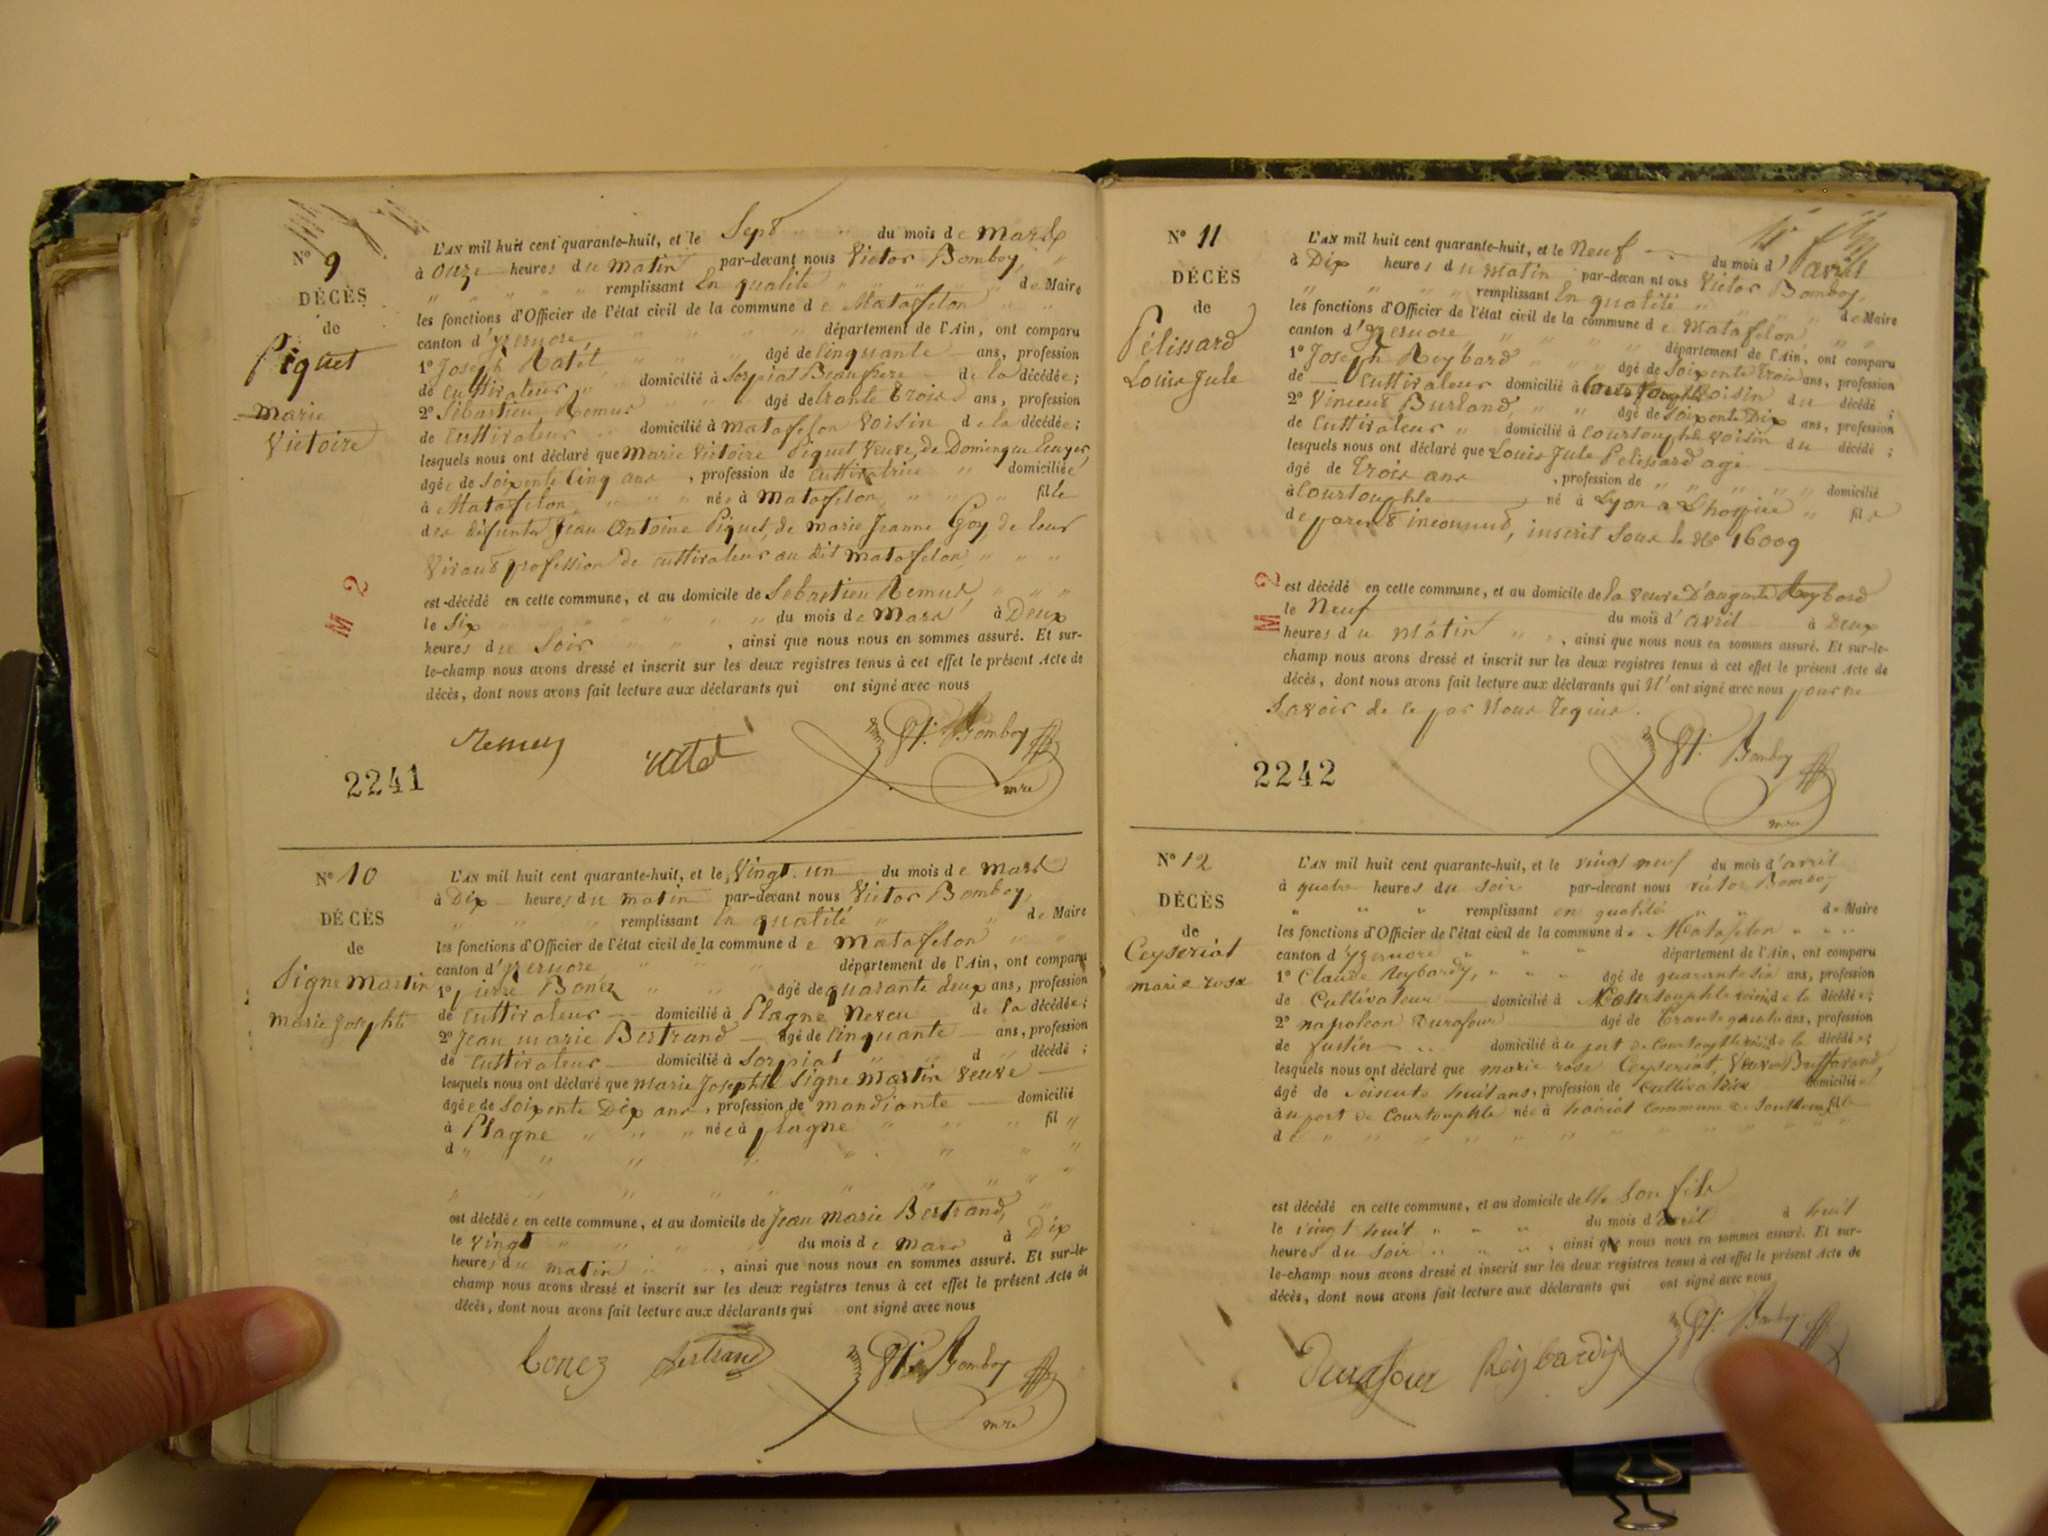 N° 9
DÉCÈS
de
Piquet
Marie
Victoire
L'AN mil huit cent quarante-huit, et le Sept " " du mois de Mars
à onze heures du Matin par-devant nous Victor Bomboy,
" " " " remplissant En qualité " " " de Maire
les fonctions d'Officier de l'état civil de la commune de Matafelon
canton d'yzernore, " " " " département de l'Ain, ont comparu
1° Joseph Ratel, " " " âgé de Cinquante ans, profession
de Cultivateur " domicilié à Sorpiat Beaufrere de la décédée;
2° Sebastien Remus " " âgé de trante trois ans, profession
de Cultivateur " domicilié à Matafelon Voisin de la décédée;
lesquels nous ont déclaré que Marie Victoire Piquet Veuve, de Domingue
âgée de Soixente Cinq ans, profession de Cultivatrice " domiciliée
à Matafelon, " " " née à Matafelon, " " " fille
des défunts Jean Antoine Piquet, de marie Jeanne Goy, de leur
Vivant profession de cultivateur au dit Matafelon, " " "
est décédé en cette commune, et au domicile de Sebastien Remus, " " "
le Six " " " " " " du mois de Mars à Deux
heures du Soir " " ", ainsi que nous nous en sommes assuré. Et sur-
le-champ nous avons dressé et inscrit sur les deux registres tenus à cet effet le présent Acte de
décès, dont nous avons fait lecture aux déclarants qui ont signé avec nous
M 2
Remus Ratel Bomboy
mre
2241
N° 10
DÉCÈS
de
Signe Martin
Marie Josephte
L'AN mil huit cent quarante-huit, et le Vingt un du mois de Mars
à Dix heures du matin par-devant nous Victor Bomboy,
" " " remplissant En qualité " " " de Maire
les fonctions d'Officier de l'état civil de la commune de Matafelon
canton d'yzernore " " " département de l'Ain, ont comparu
1° Pierre Bonez " " âgé de quarante deux ans, profession
de Cultivateur domicilié à Plagne Neveu de la décédée;
2° Jean marie Bertrand âgé de Cinquante ans, profession
de Cultivateur domicilié à Sorpiat " " d décédé;
lesquels nous ont déclaré que Marie Josephte Signe Martin Veuve
âgée de Soixente Dix ans, profession de mandiante domicilié
à Plagne " " " née à plagne " " " fil "
d " " " " " " "
" " " " " " " "
est décédée en cette commune, et au domicile de Jean Marie Bertrand, "
le Vingt " " " " du mois de Mars à Dix
heures du matin " ", ainsi que nous nous en sommes assuré. Et sur-le-
champ nous avons dressé et inscrit sur les deux registres tenus à cet effet le présent Acte de
décès, dont nous avons fait lecture aux déclarants qui ont signé avec nous
bonez bertrand Bomboy
mre
N° 11
DÉCÈS
de
Pélissard
Louis Jule
L'AN mil huit cent quarante-huit, et le Neuf du mois d'avril
à Dix heures du Matin par-devant nous Victor Bomboy,
" " " remplissant En qualité " de Maire
les fonctions d'Officier de l'état civil de la commune de Matafelon
canton d'yzernore " " " " département de l'Ain, ont comparu
1° Joseph Reybard " " " âgé de Soixente trois ans, profession
de Cultivateur domicilié à Voisin du décédé;
2° Vincent Burland, " " âgé de Soixente Dix ans, profession
de Cultivateur " domicilié à Courtouphle Voisin du décédé;
lesquels nous ont déclaré que Louis Jule Pelissard agé
âgé de trois ans, profession de " " " " domicilié
à Courtouphle né à Lyon a L'hospice " fils
de parents inconnus, inscrit Sous le N° 16009
est décédé en cette commune, et au domicile de la Veuve D'auguste Reybard
le Neuf du mois d'avril à Deux
heures du Matin " ", ainsi que nous nous en sommes assuré. Et sur-le-
champ nous avons dressé et inscrit sur les deux registres tenus à cet effet le présent Acte de
décès, dont nous avons fait lecture aux déclarants qui N'ont signé avec nous pour ne
Savoir de ce par Nous requis.
M 2
Bomboy
mre
2242
N° 12
DÉCÈS
de
Ceyseriat
marie rose
L'AN mil huit cent quarante-huit, et le vingt neuf du mois d'avril
à quatre heures du Soir par-devant nous victor Bomboy
" " " remplissant en qualité " " de Maire
les fonctions d'Officier de l'état civil de la commune de Matafelon " " "
canton d'yzernore " " " département de l'Ain, ont comparu
1° Claude Reybardy, " " " âgé de quarante six ans, profession
de Cultivateur domicilié à Courtouphle voisin de la décédée;
2° napoleon Durafour âgé de trante quatre ans, profession
de fustier " " domicilié à u port de Courtouphle voisin de la décédée;
lesquels nous ont déclaré que marie rose Ceyseriat, Veuve Buffavand,
âgé de Soisente huit ans, profession de Cultivatrice domiciliée
à u port de Courtouphle née à commune de fille
de " " " " " " " " " " "
est décédé en cette commune, et au domicile de Son fils
le vingt huit " " " du mois d'avril à huit
heures du Soir " " ", ainsi que nous nous en sommes assuré. Et sur-
le-champ nous avons dressé et inscrit sur les deux registres tenus à cet effet le présent Acte de
décès, dont nous avons fait lecture aux déclarants qui ont signé avec nous
Durafour Reybardy Bomboy